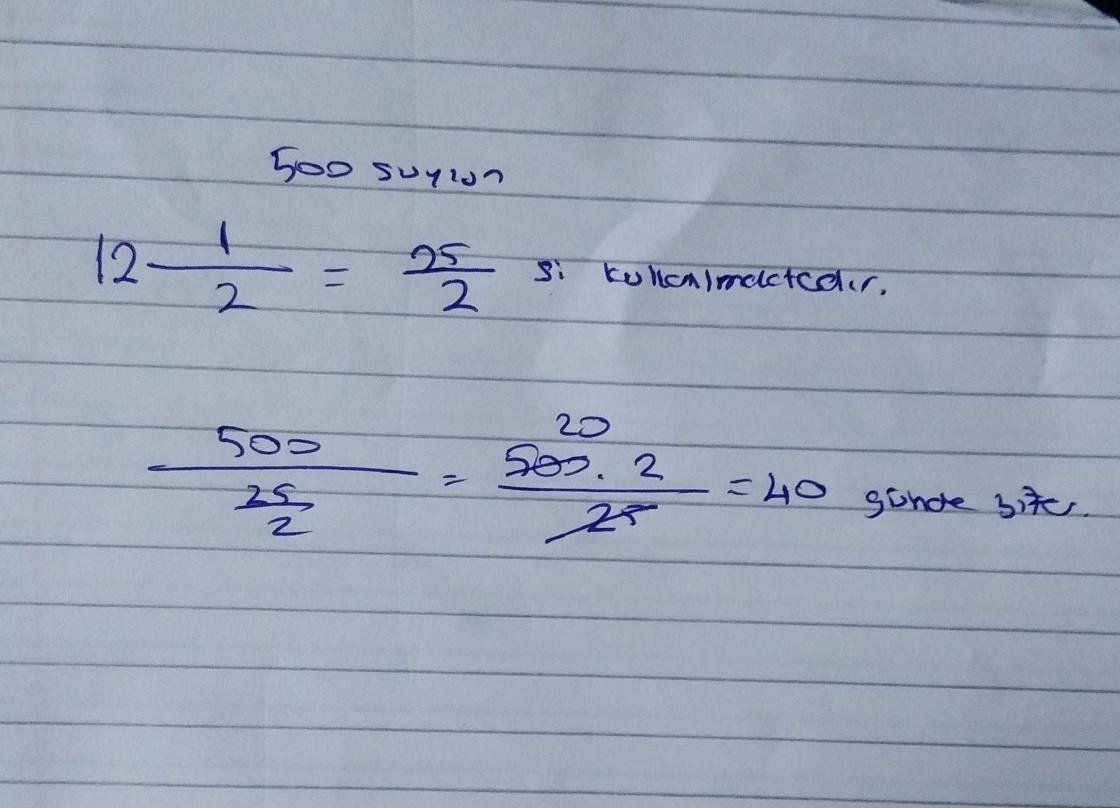 500 suyun
12 1/2 = 25/2 si kullanılmaktadır.
500 / (25/2) = 20 500. 2 / 25 = 40 günde biter.